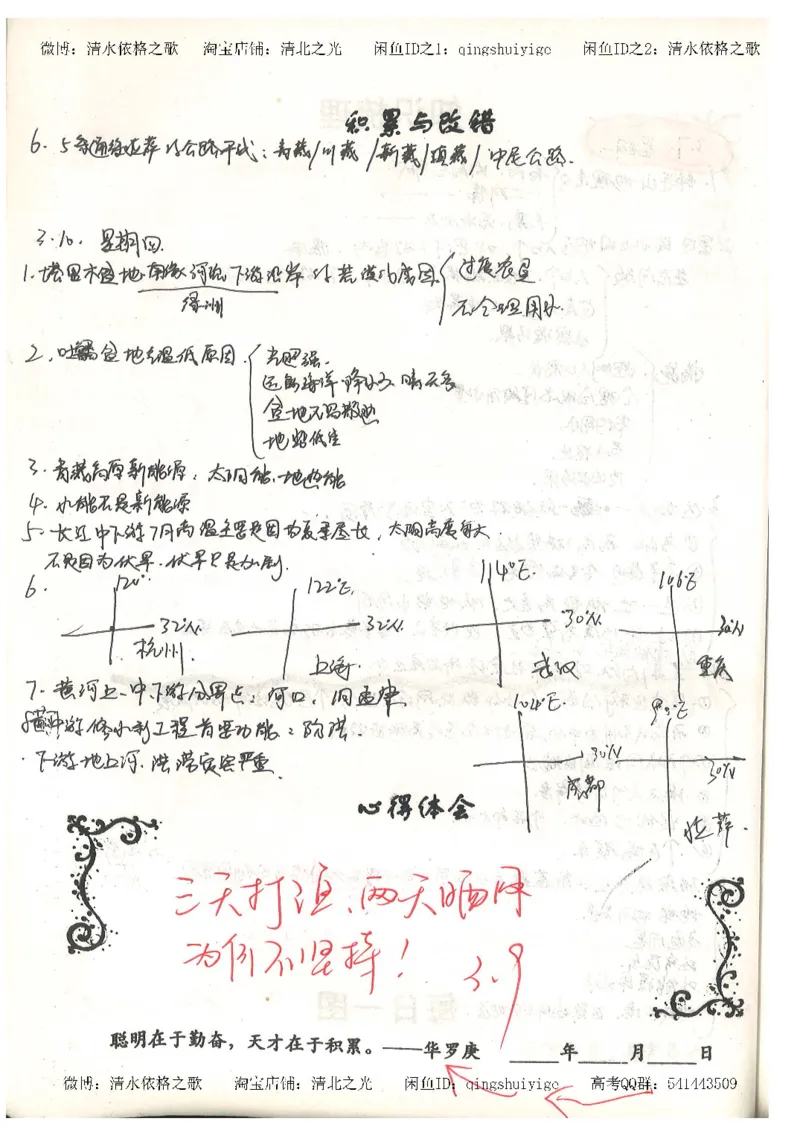 微博：清水依格之歌 淘宝店铺：清北之光 闲鱼ID之1：qingshuiyige 闲鱼ID之2：清水依格之歌
积累与改错
6. 5条通往拉萨的公路干线：青藏/川藏/新藏/滇藏/中尼公路.
3.10. 星期四
1.塔里木盆地南缘河流下游沿岸的荒漠的原因 过度农垦
绿洲 不合理用水
2.吐鲁番盆地气温低原因 光照强.
远离海洋 降水少 晴天多
盆地不易散热
地势低洼
3.青藏高原新能源：太阳能.地热能
4.水能不是新能源
5.长江中下游7月高温主要是因为夏季昼长，太阳高度角大.
不是因为伏旱.伏旱只是加剧.
6. 120° 122°E. 114°E. 106°E
32°N. 32°N. 30°N. 30°N
杭州 上海. 武汉 重庆
7.黄河上、中下游分界点：河口，旧孟津 104°E.
中游修水利工程首要功能：防洪. 30°N 30°N
·下游地上河.洪涝灾害严重. 成都 拉萨.
心得体会
三天打渔、两天晒网
为何不坚持！ 3.9
聪明在于勤奋，天才在于积累。——华罗庚 _____年_____月_____日
微博：清水依格之歌 淘宝店铺：清北之光 闲鱼ID：qingshuiyige 高考QQ群：541443509